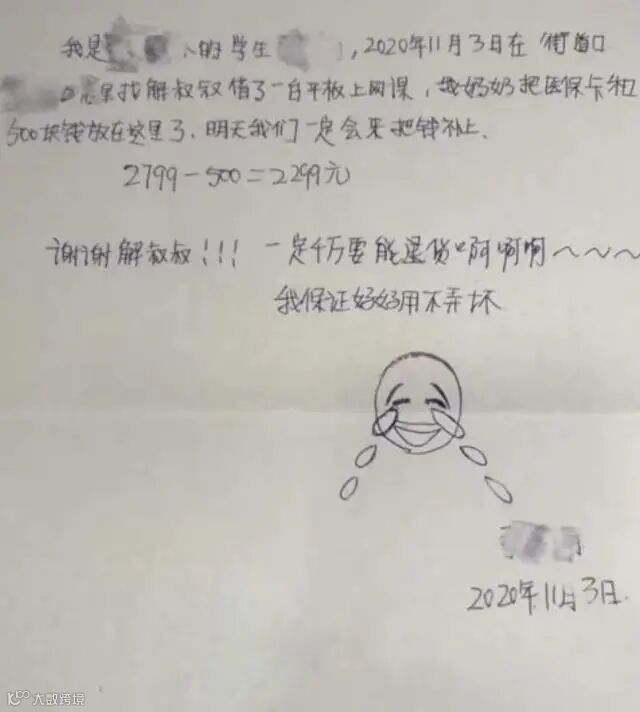 我是 的学生 ，2020年11月3日在 街道口
找解叔叔借了一台平板上网课，我妈妈把医保卡和
500块钱放在这里了，明天我们一定会来把钱补上.
2799-500=2299元
谢谢解叔叔!!! 一定千万要能退货啊啊啊～～～
我保证好好用不弄坏
2020年11月3日.
大数跨境